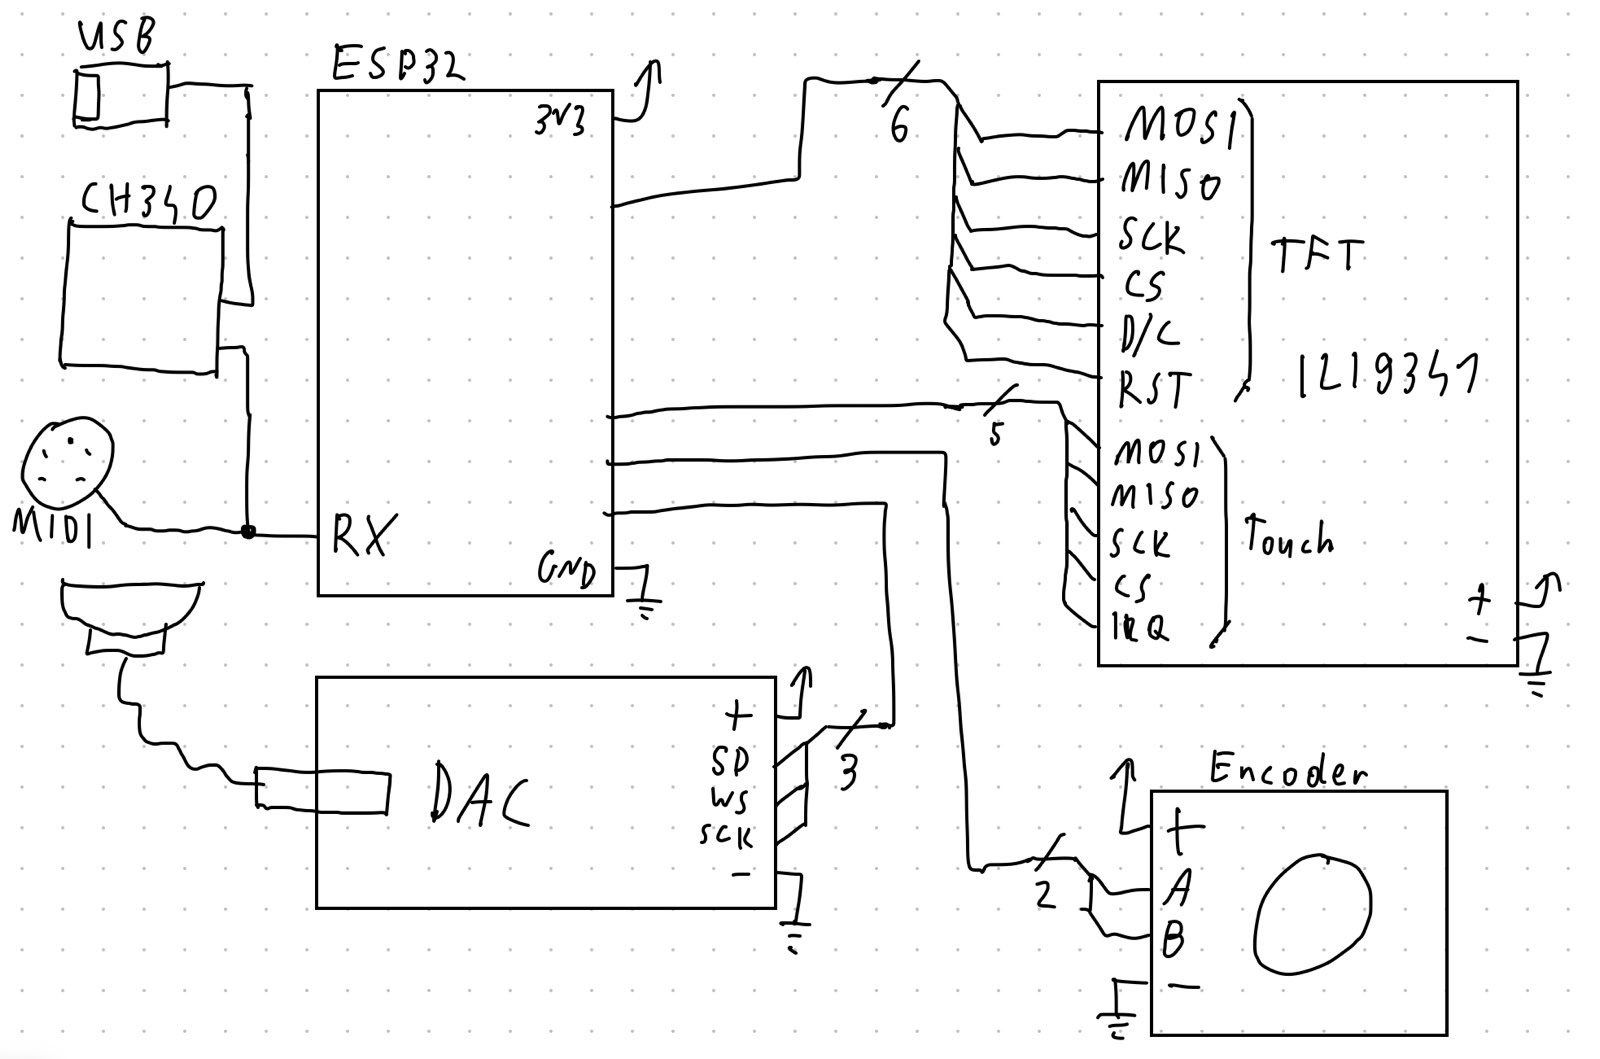 USB
ESP32
3V3
CH340
MIDI
RX
GND
6
MOSI
MISO
SCK
CS
D/C
RST
TFT
ILI9341
5
MOSI
MISO
SCK
CS
IRQ
Touch
+
-
DAC
+
SD
WS
SCK
-
3
Encoder
2
+
A
B
-